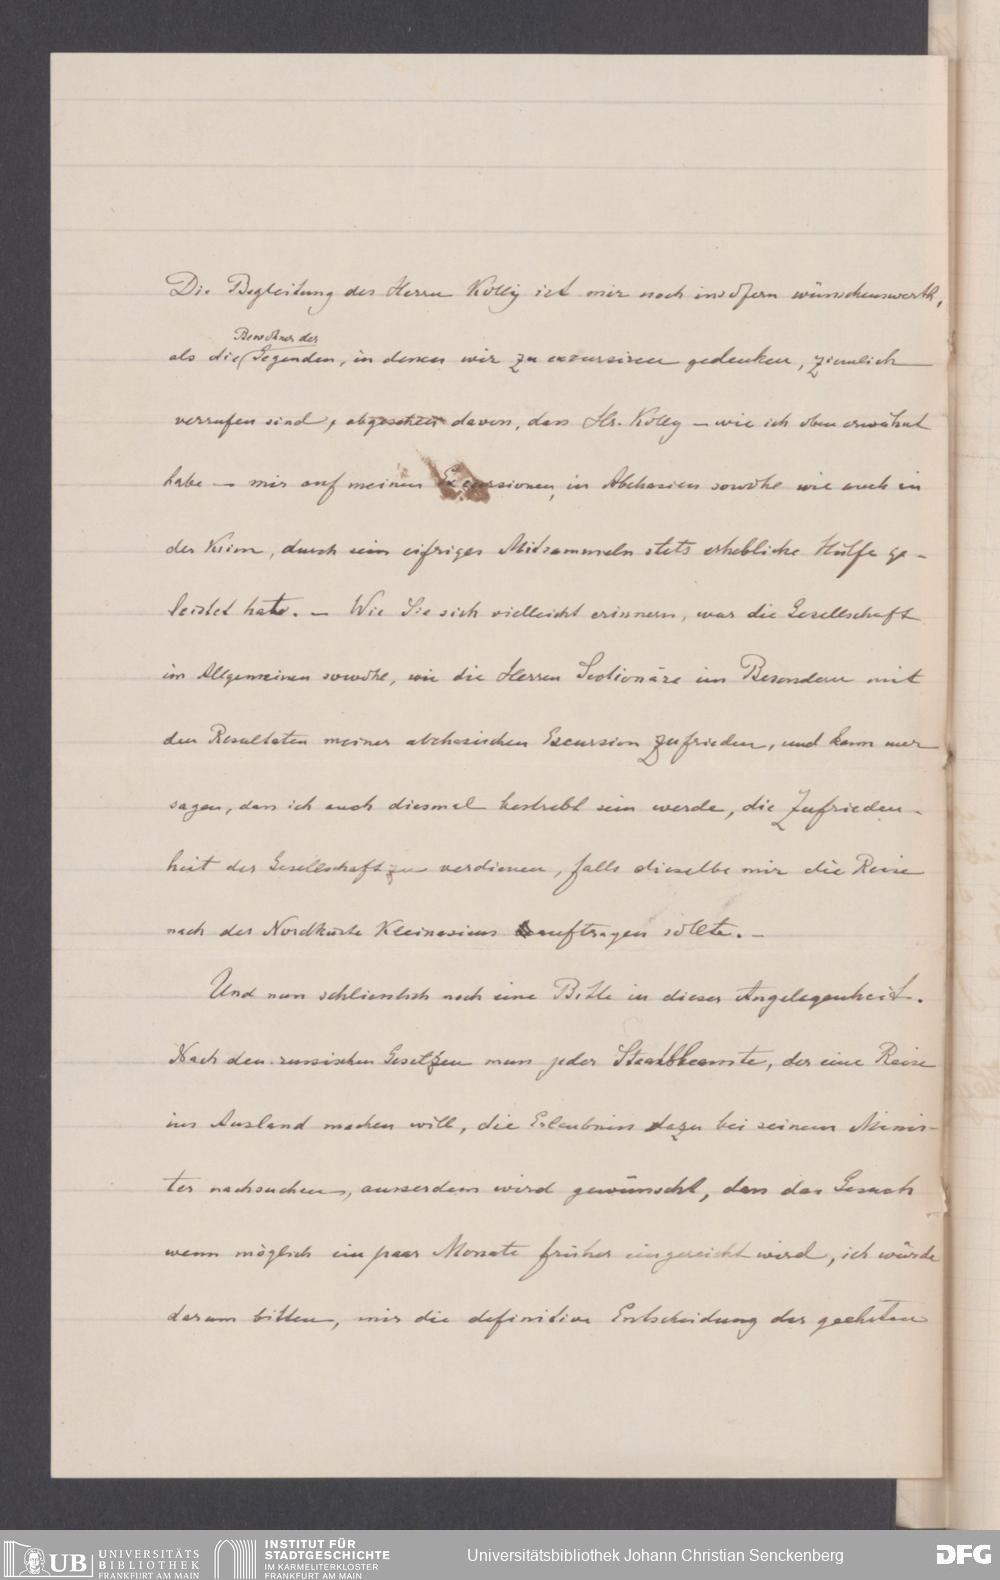 Die Begleitung des Herrn Kolly ist mir noch insofern wünschenswerth,
Bewohner der
als die Gegenden, in denen wir zu excursiren gedenken, ziemlich
verrufen sind, abgesehen davon, dass Hr. Kolly – wie ich oben erwähnt
habe – mir auf meinen Excursionen, in Abchasien sowohl wie auch in
der Krim, durch sein eifriges Mitsammeln stets erhebliche Hülfe ge-
leistet hat. – Wie Sie sich vielleicht erinnern, war die Gesellschaft
im Allgemeinen sowohl, wie die Herren Sectionäre im Besondern mit
den Resultaten meiner abchasischen Excursion zufrieden, und kann nur
sagen, dass ich auch diesmal bestrebt sein werde, die Zufrieden-
heit der Gesellschaft zu verdienen, falls dieselbe mir die Reise
nach der Nordküste Kleinasiens auftragen sollte. –
Und nun schliesslich noch eine Bitte in dieser Angelegenheit.
Nach den russischen Gesetzen muss jeder Staatsbeamte, der eine Reise
ins Ausland machen will, die Erlaubniss dazu bei seinem Minis-
ter nachsuchen, ausserdem wird gewünscht, dass das Gesuch
wenn möglich ein paar Monate früher eingereicht wird, ich würde
darum bitten, mir die definitive Entscheidung der geehrten
UB UNIVERSITÄTS
BIBLIOTHEK
FRANKFURT AM MAIN
INSTITUT FÜR
STADTGESCHICHTE
IM KARMELITERKLOSTER
FRANKFURT AM MAIN
Universitätsbibliothek Johann Christian Senckenberg
DFG